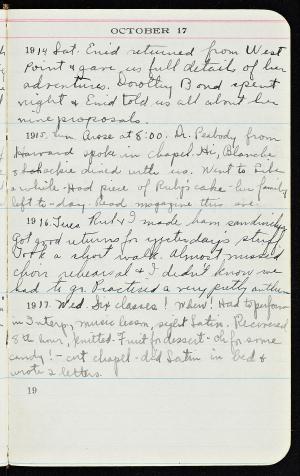 OCTOBER 17
1914 Sat. Enid returned from West
Point & gave us full details of her
adventures. Doolthy Bond spent
night & Enid told us all about her
nine proposals.
1915. Sun. Arose at 8:00. Dr. Peabody from
Harvard spoke in chapel. Hi, Blanche
& dined with us. Went to Libe
a while - Had piece of Ruby's cake - her family
left to-day. Read magazine this eve.
1916. Tues Ruth & I made ham sandwiches
Got good returns for yesterday's stuff.
Took a short walk. Almost missed
choir rehearsal & I didn't know we
had to go. Practised a very pretty anthem
1917. Wed. Six classes! Whew! Had to perform
in Interp, music lesson, sight Latin. Recovered
8th hour, knitted - Fruit for dessert - oh for some
candy! - cut chapel - did Latin in bed &
wrote 2 letters.
19